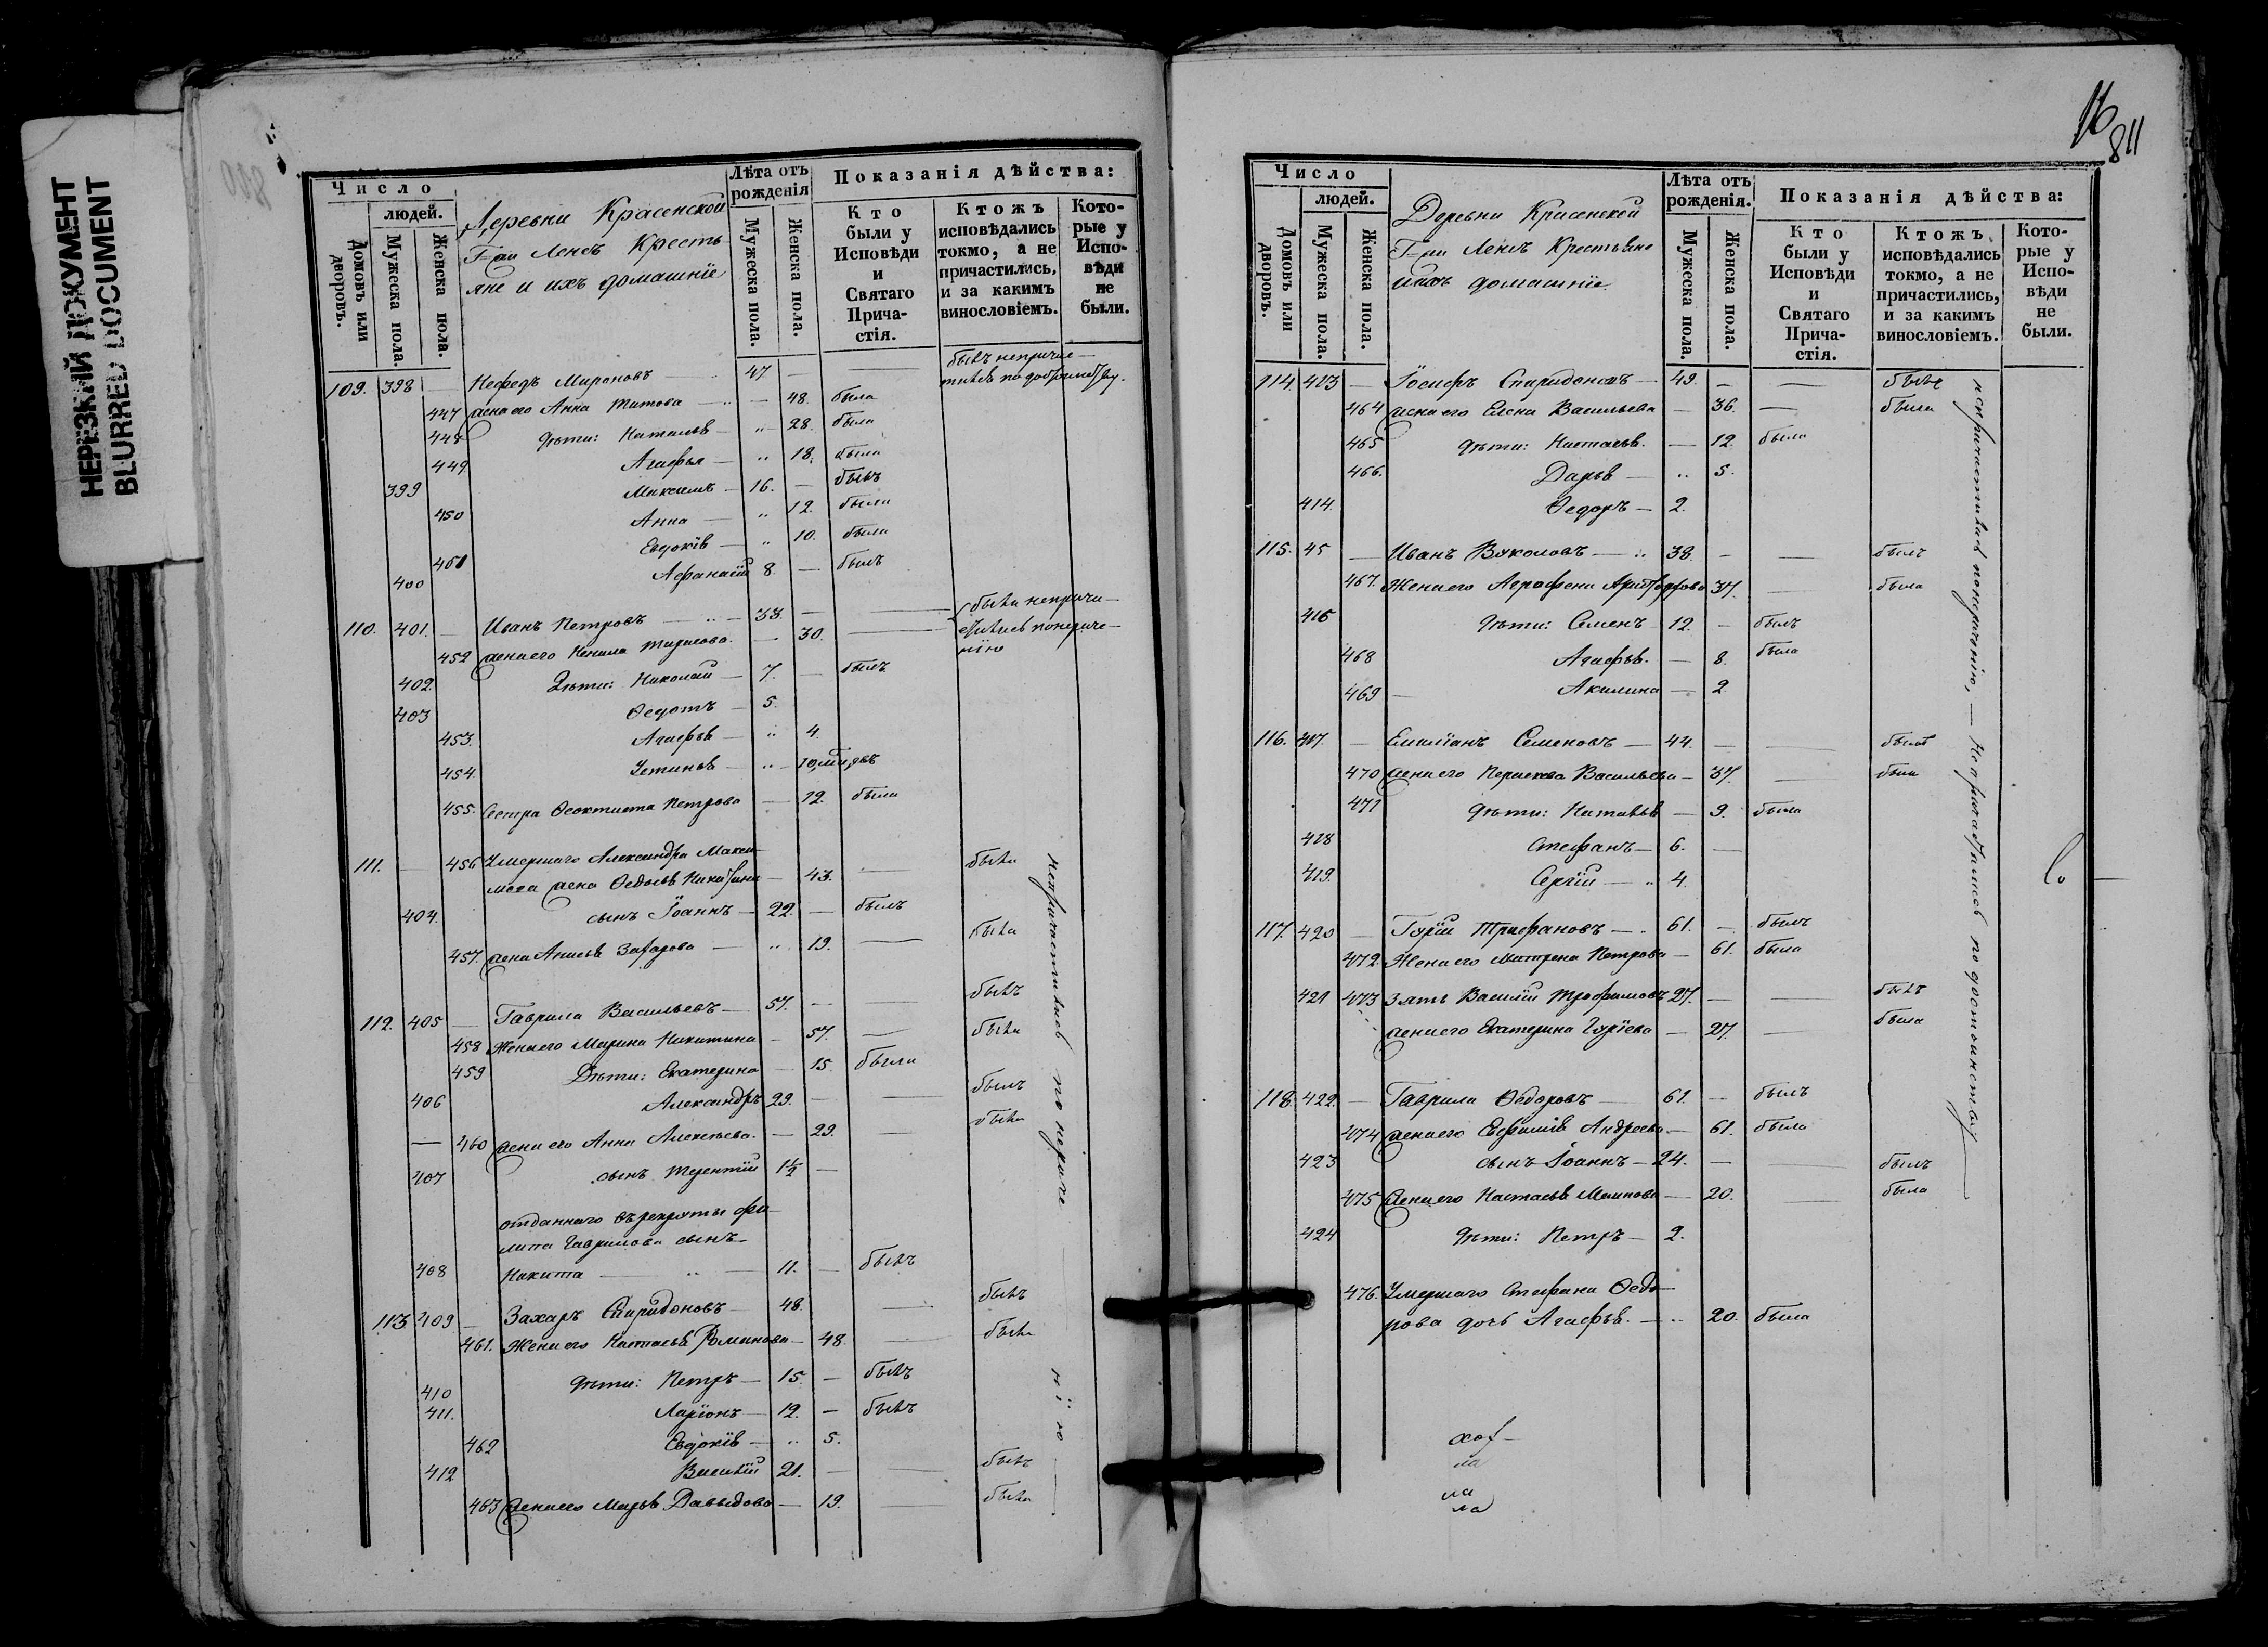 НЕРЕЗКИЙ ДОКУМЕНТ
BLURRED DOCUMENT
Число
людей.
Домовъ или дворовъ.
Мужеска пола.
Женска пола.
Деревни Красенской
Г=жи Ленсъ Кресть
яне и ихъ домашніе
Лѣта отъ рожденія
Мужеска пола.
Женска пола.
Показанія дѣйства:
Кто были у Исповѣди и Святаго Прича-стія.
Ктожъ исповѣдались токмо, а не причастились, и за какимъ винословіемъ.
Кото-рые у Испо-вѣди не были.
109. 398 — Нефедъ Мироновъ — 47 — — былъ непричас-
447 жена его Анна Титова — — 48. была
448 дѣти: Наталья — „ 28. была
449 Агафья — „ 18. была
399 Максимъ — 16. — былъ
450 Анна — „ 12. была
451 Евдокія — „ 10. была
400 Афанасій 8. — былъ
110. 401. — Иванъ Петровъ — 33. — — были неприча-
452 жена его — 30. — стились по нераче-
нію
402. Дѣти: Николай — 7. — былъ
403 Ѳедотъ — 5.
453. Агафья — „ 4.
454. Устинья — „ — 10, мѣсяцъ
455. Сестра Ѳеоктиста Петрова — 12. была
111. — 456 Умершаго Александра Макси-
мова жена Ѳедосья Никитина — 43. — была
404. сынъ Іоаннъ — 22. — былъ
457. жена Анисья Захарова — „ 19. — была
непричастились по нераче нію
112. 405 — Гаврила Васильевъ — 57. — — былъ
458 Жена его Марина Никитина — 57. — была
459 Дѣти: Екатерина — 15. была
406 Александръ 29. — — былъ
— 460 жена его Анна Алексѣева. — 29. — была
407 сынъ Терентій 1½ —
отданнаго въ рекруты Фи-
липа Гаврилова сынъ
408 Никита — „ — 11. — былъ
113 409 — Захаръ Спиридоновъ — 48. — былъ
461. Жена его Настасья Романова — 48. — была
410 дѣти: Петръ — 15. — былъ
411. Ларіонъ — 12. — былъ
462 Евдокія — „ 5.
412 Василій 21. — — былъ
463 жена его Марья Давыдова — 19. — была
16
811
Число
людей.
Домовъ или дворовъ.
Мужеска пола.
Женска пола.
Деревни Красенской
Г=жи Ленсъ Крестьяне
и ихъ домашніе
Лѣта отъ рожденія.
Мужеска пола.
Женска пола.
Показанія дѣйства:
Кто были у Исповѣди и Святаго Прича-стія.
Ктожъ исповѣдались токмо, а не причастились, и за какимъ винословіемъ.
Кото-рые у Испо-вѣди не были.
114. 413 — Іосифъ Спиридоновъ — 49. — — былъ
464 жена его Елена Васильева — 36. — была
465 дѣти: Настасья. — 12. была
466. Дарья — „ 5.
414. Ѳедоръ — 2.
115. 45 — Иванъ Вуколовъ — „ 38. — — былъ
467. Жена его 37. — была
416 Дѣти: Семенъ 12. — былъ
468 Агафья. — 8. была
469 — Акилина — 2
116. 417. — Емиліанъ Семеновъ — 44. — — былъ
470 жена его Параскева Васильева — 37. — была
471 дѣти: Наталья — 9. была
418 Стефанъ — 6. —
419. Сергій — „ 4.
117. 420 — Гурій Трифановъ — 61. — былъ
472. Жена его Матрена Петрова — 61. была
421 473 Зять Василій Трофимовъ 27. — — былъ
жена его Екатерина Гуріева — 27. — была
118. 422. — Гаврила Ѳедоровъ — 61. — былъ
474 жена его Евфимія Андреева — 61. была
423 сынъ Іоаннъ — 24. — — былъ
475 Жена его Настасья — 20. — была
424 дѣти: Петръ — 2.
476. Умершаго Стефана Ѳедо-
рова дочь Агафья. — „ 20. была
непричастились по нераченію, — Непричастились по